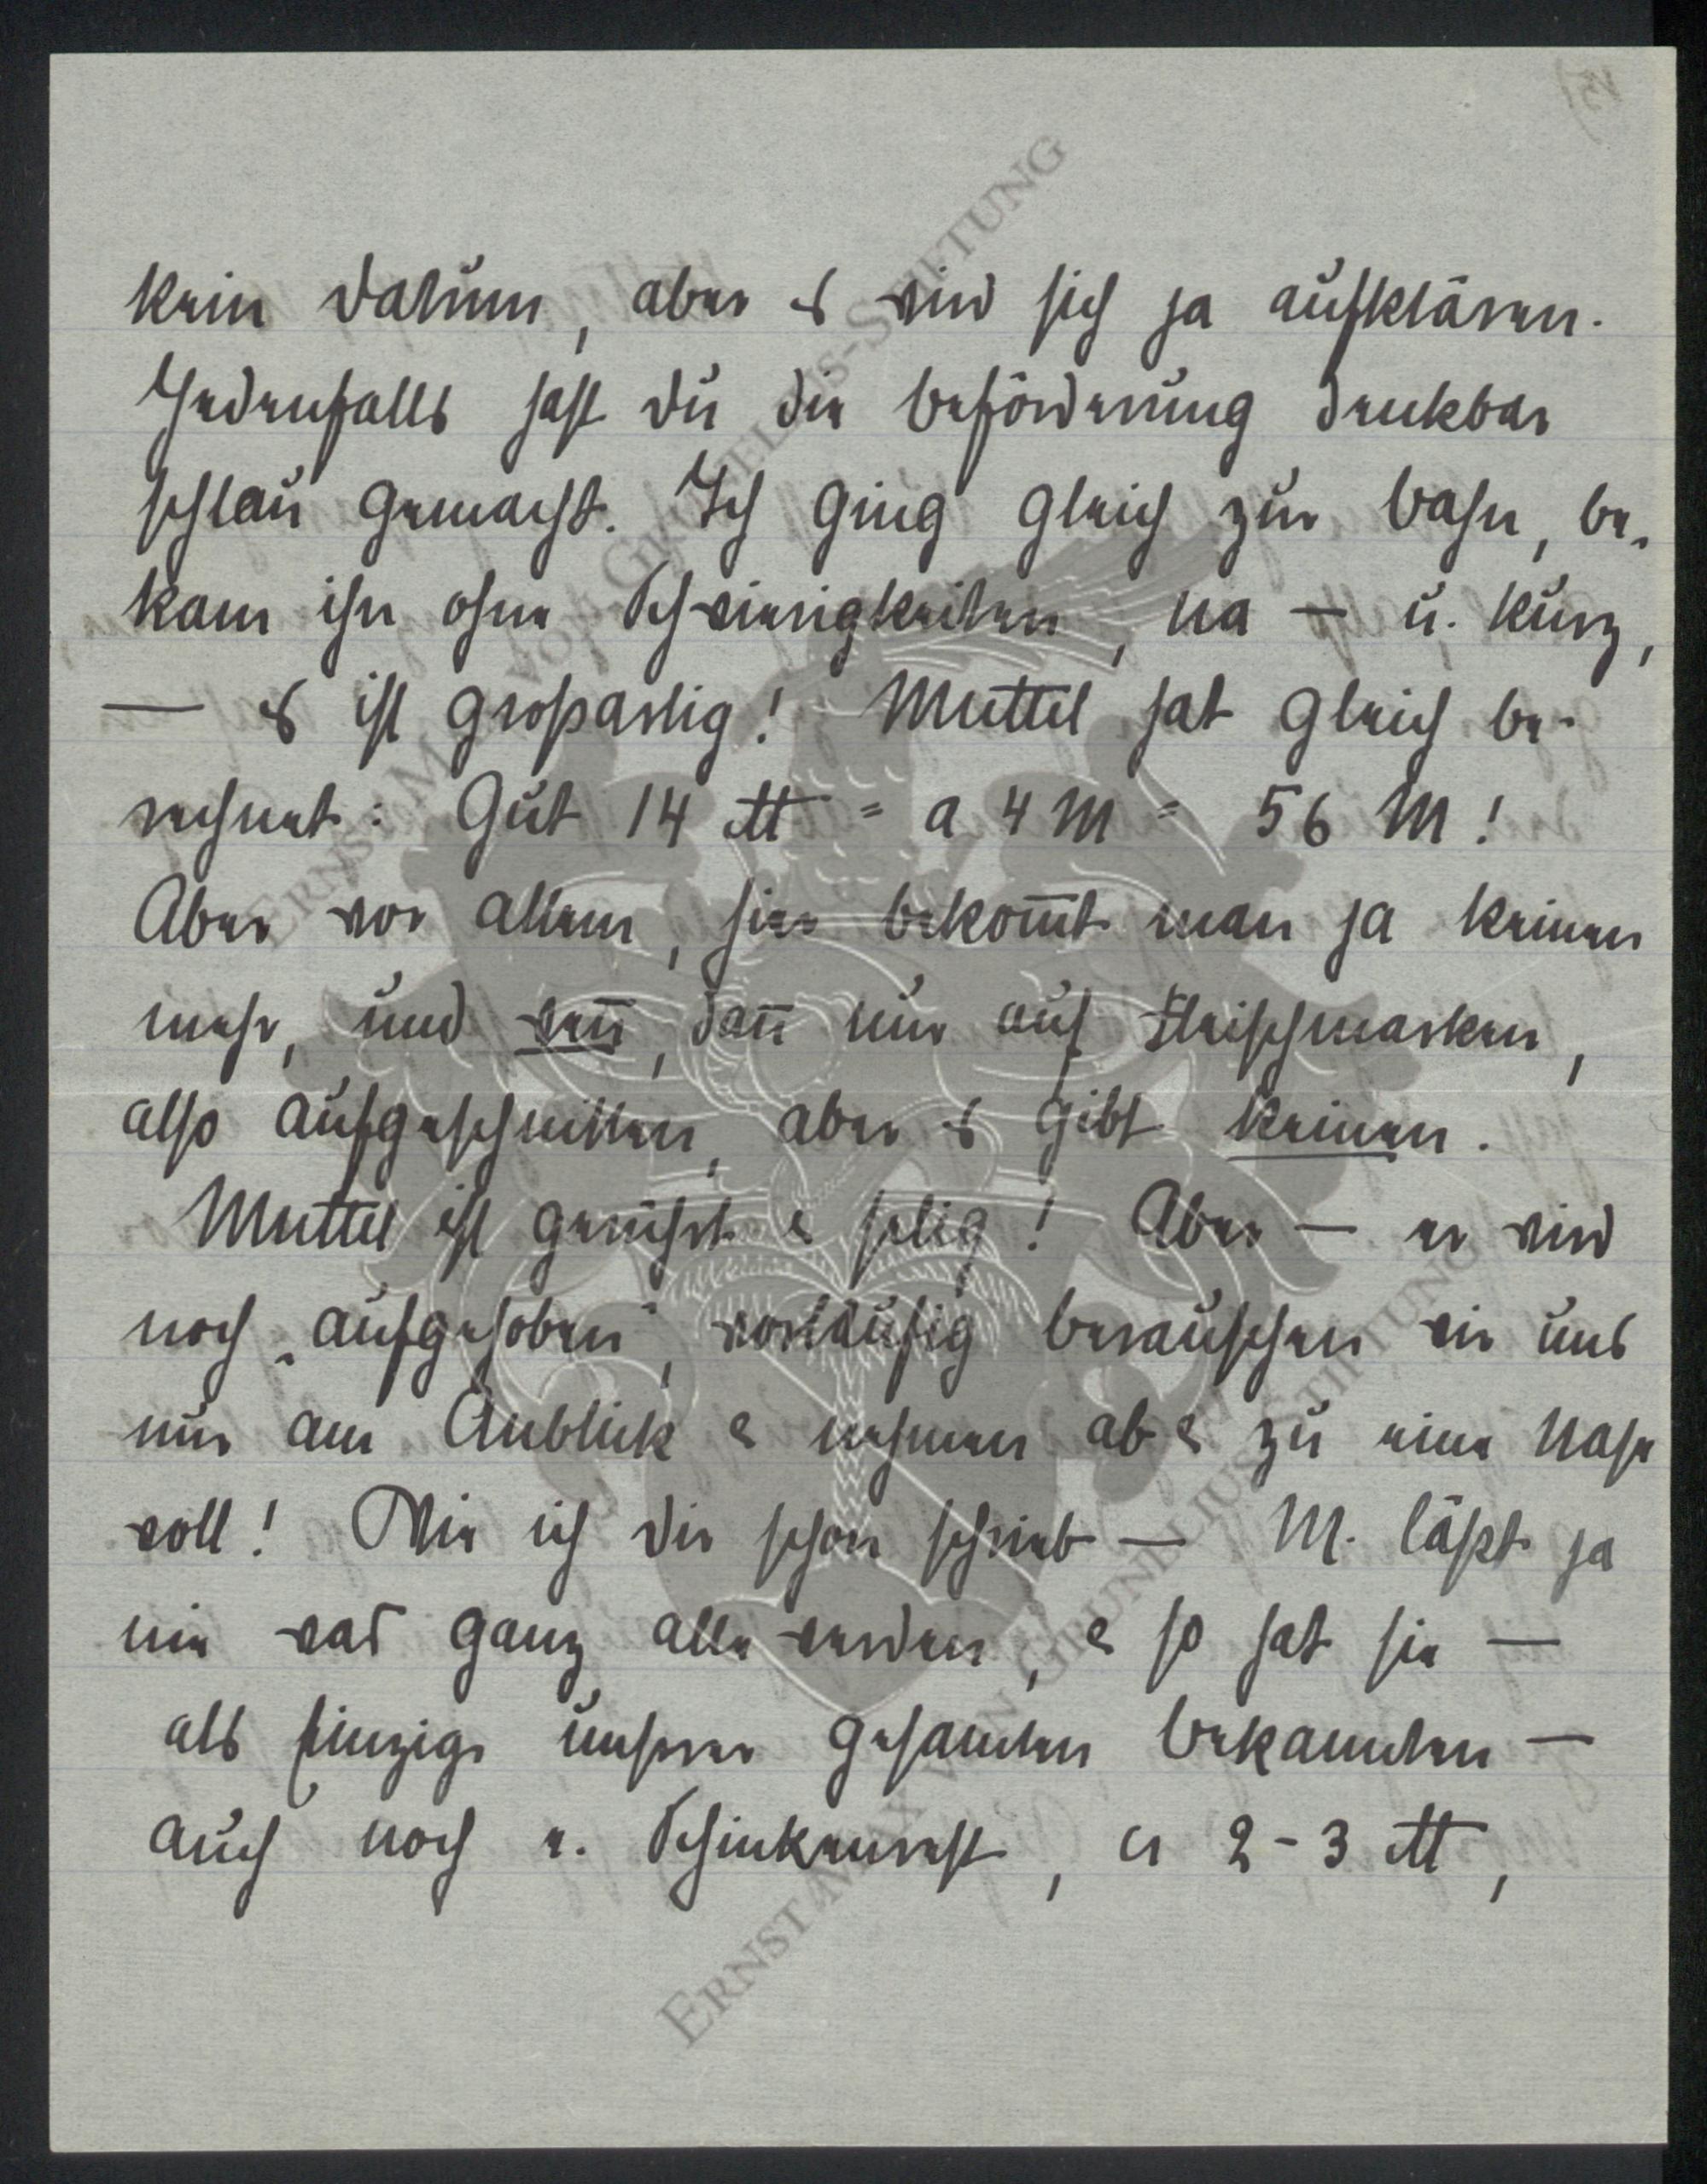 kein Datum, aber es wird sich ja aufklären.
Jedenfalls hast Du die Beförderung denkbar
schlau gemacht. Ich ging gleich zur Bahn, be-
kam ihn ohne Schwierigkeiten, na — u. kurz,
— es ist großartig! Muttel hat gleich be-
rechnet: Gut 14 ℔ = a 4 M = 56 M!
Aber vor allem, hier bekom̅t man ja keinen
mehr, und wen̅, dan̅ nur auf Fleischmarken,
also aufgeschnitten, aber es gibt keinen.
Muttel ist gerührt & selig! Aber — er wird
noch „aufgehoben", vorläufig berauschen wir uns
nur am Anblick & nehmen ab & zu eine Nase
voll! Wie ich Dir schon schrieb — M. läßt ja
nie was ganz alle werden, & so hat sie —
als Einzige unserer gesamten Bekannten —
auch noch e. Schinkenrest, ca 2-3 ℔,
ERNST MAX VON GRUNELIUS-STIFTUNG
ERNST MAX VON GRUNELIUS-STIFTUNG